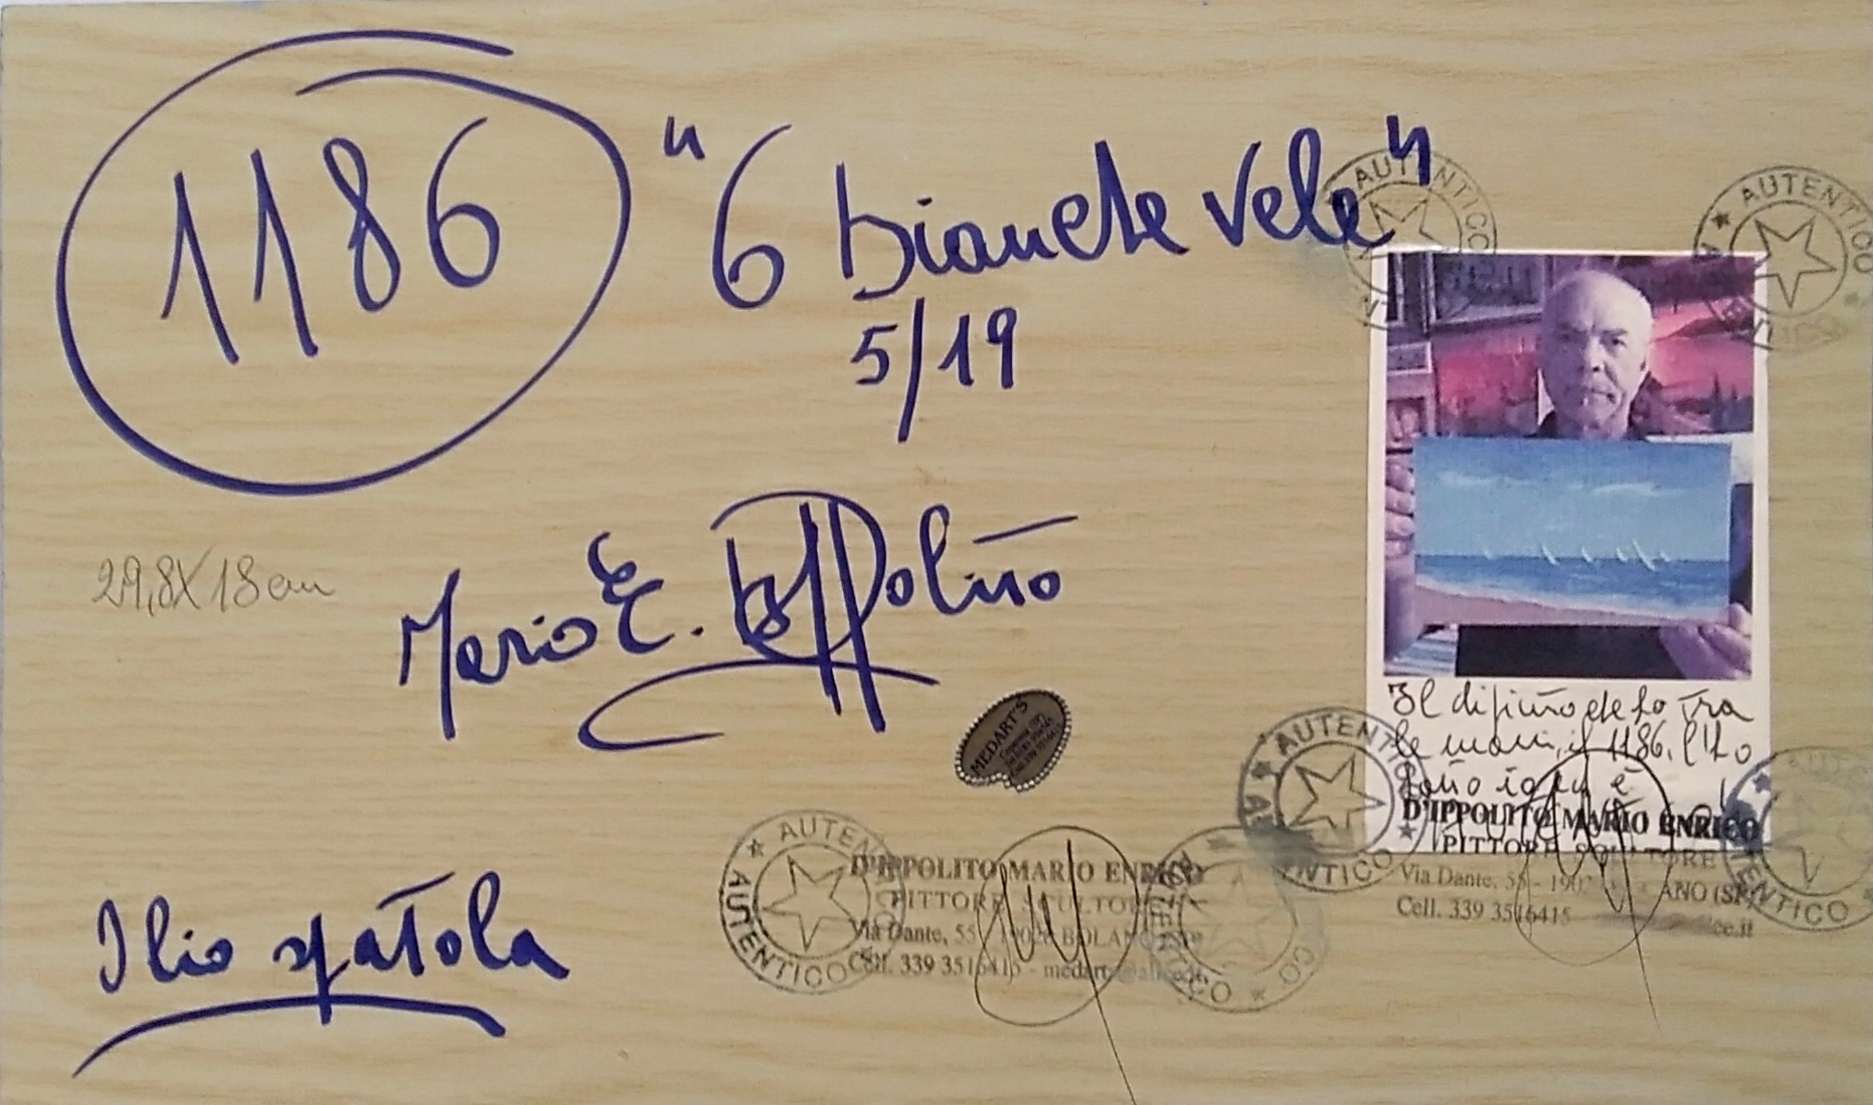 1186
"6 bianche vele"
5/19
29,8X18 cm
Mario E. D'Ippolito
Olio spatola
MEDART'S
AUTENTICO
AUTENTICO
Il dipinto che ho tra
le mani, il 1186, l'ho
fatto io ed è
D'IPPOLITO MARIO ENRICO
PITTORE SCULTORE
Via Dante, 55 - 1902 ANO (SP)
Cell. 339 3516415
ce.it
AUTENTICO
AUTENTICO
AUTENTICO
AUTENTICO
D'IPPOLITO MARIO ENRICO
PITTORE SCULTORE
Via Dante, 55 19020 BOLANO (SP)
Cell. 339 3516415 - medarts@alice.it